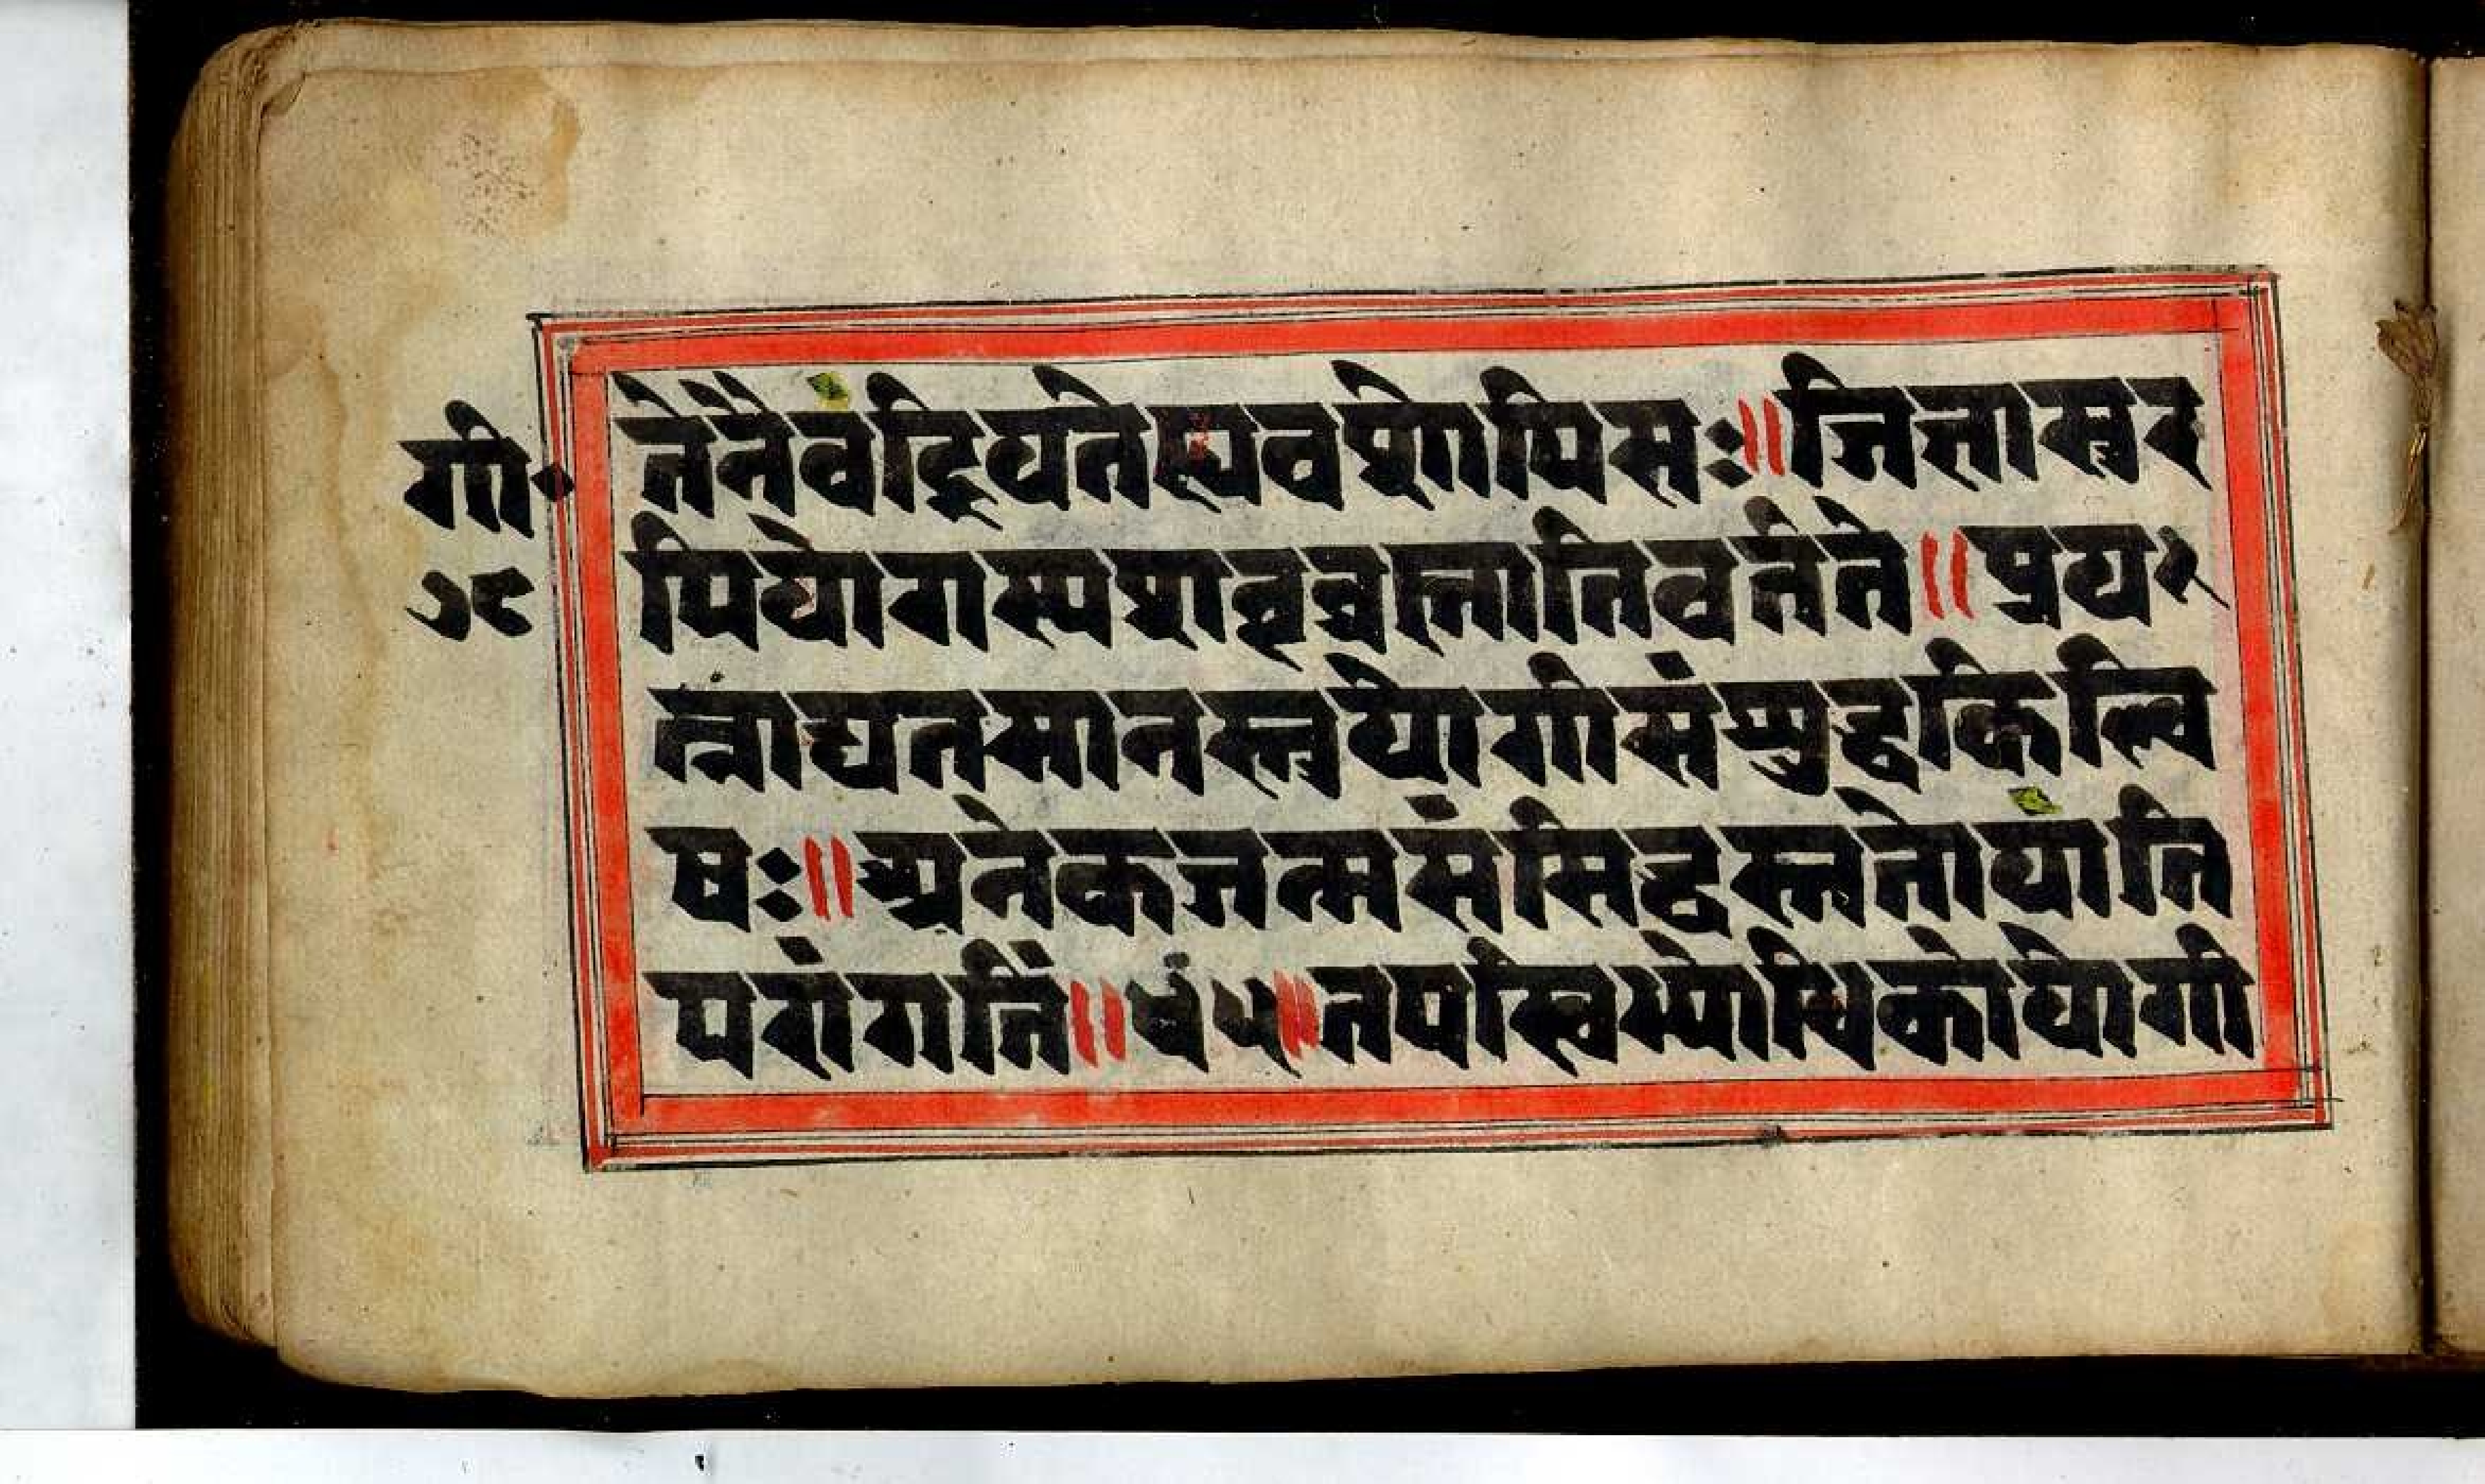 गी॰
तेनैवंद्रियतेह्यवशोपिसः॥जिज्ञासुर
७८
पियोगस्यशब्दब्रह्मातिवर्त्तते॥प्रय
त्नाद्यतमानस्तुयोगीसंशुद्धकिल्वि
षः॥अनेकजन्मसंसिद्धस्ततोयाति
परांगतिं॥४५॥तपस्विभ्योधिकोयोगी